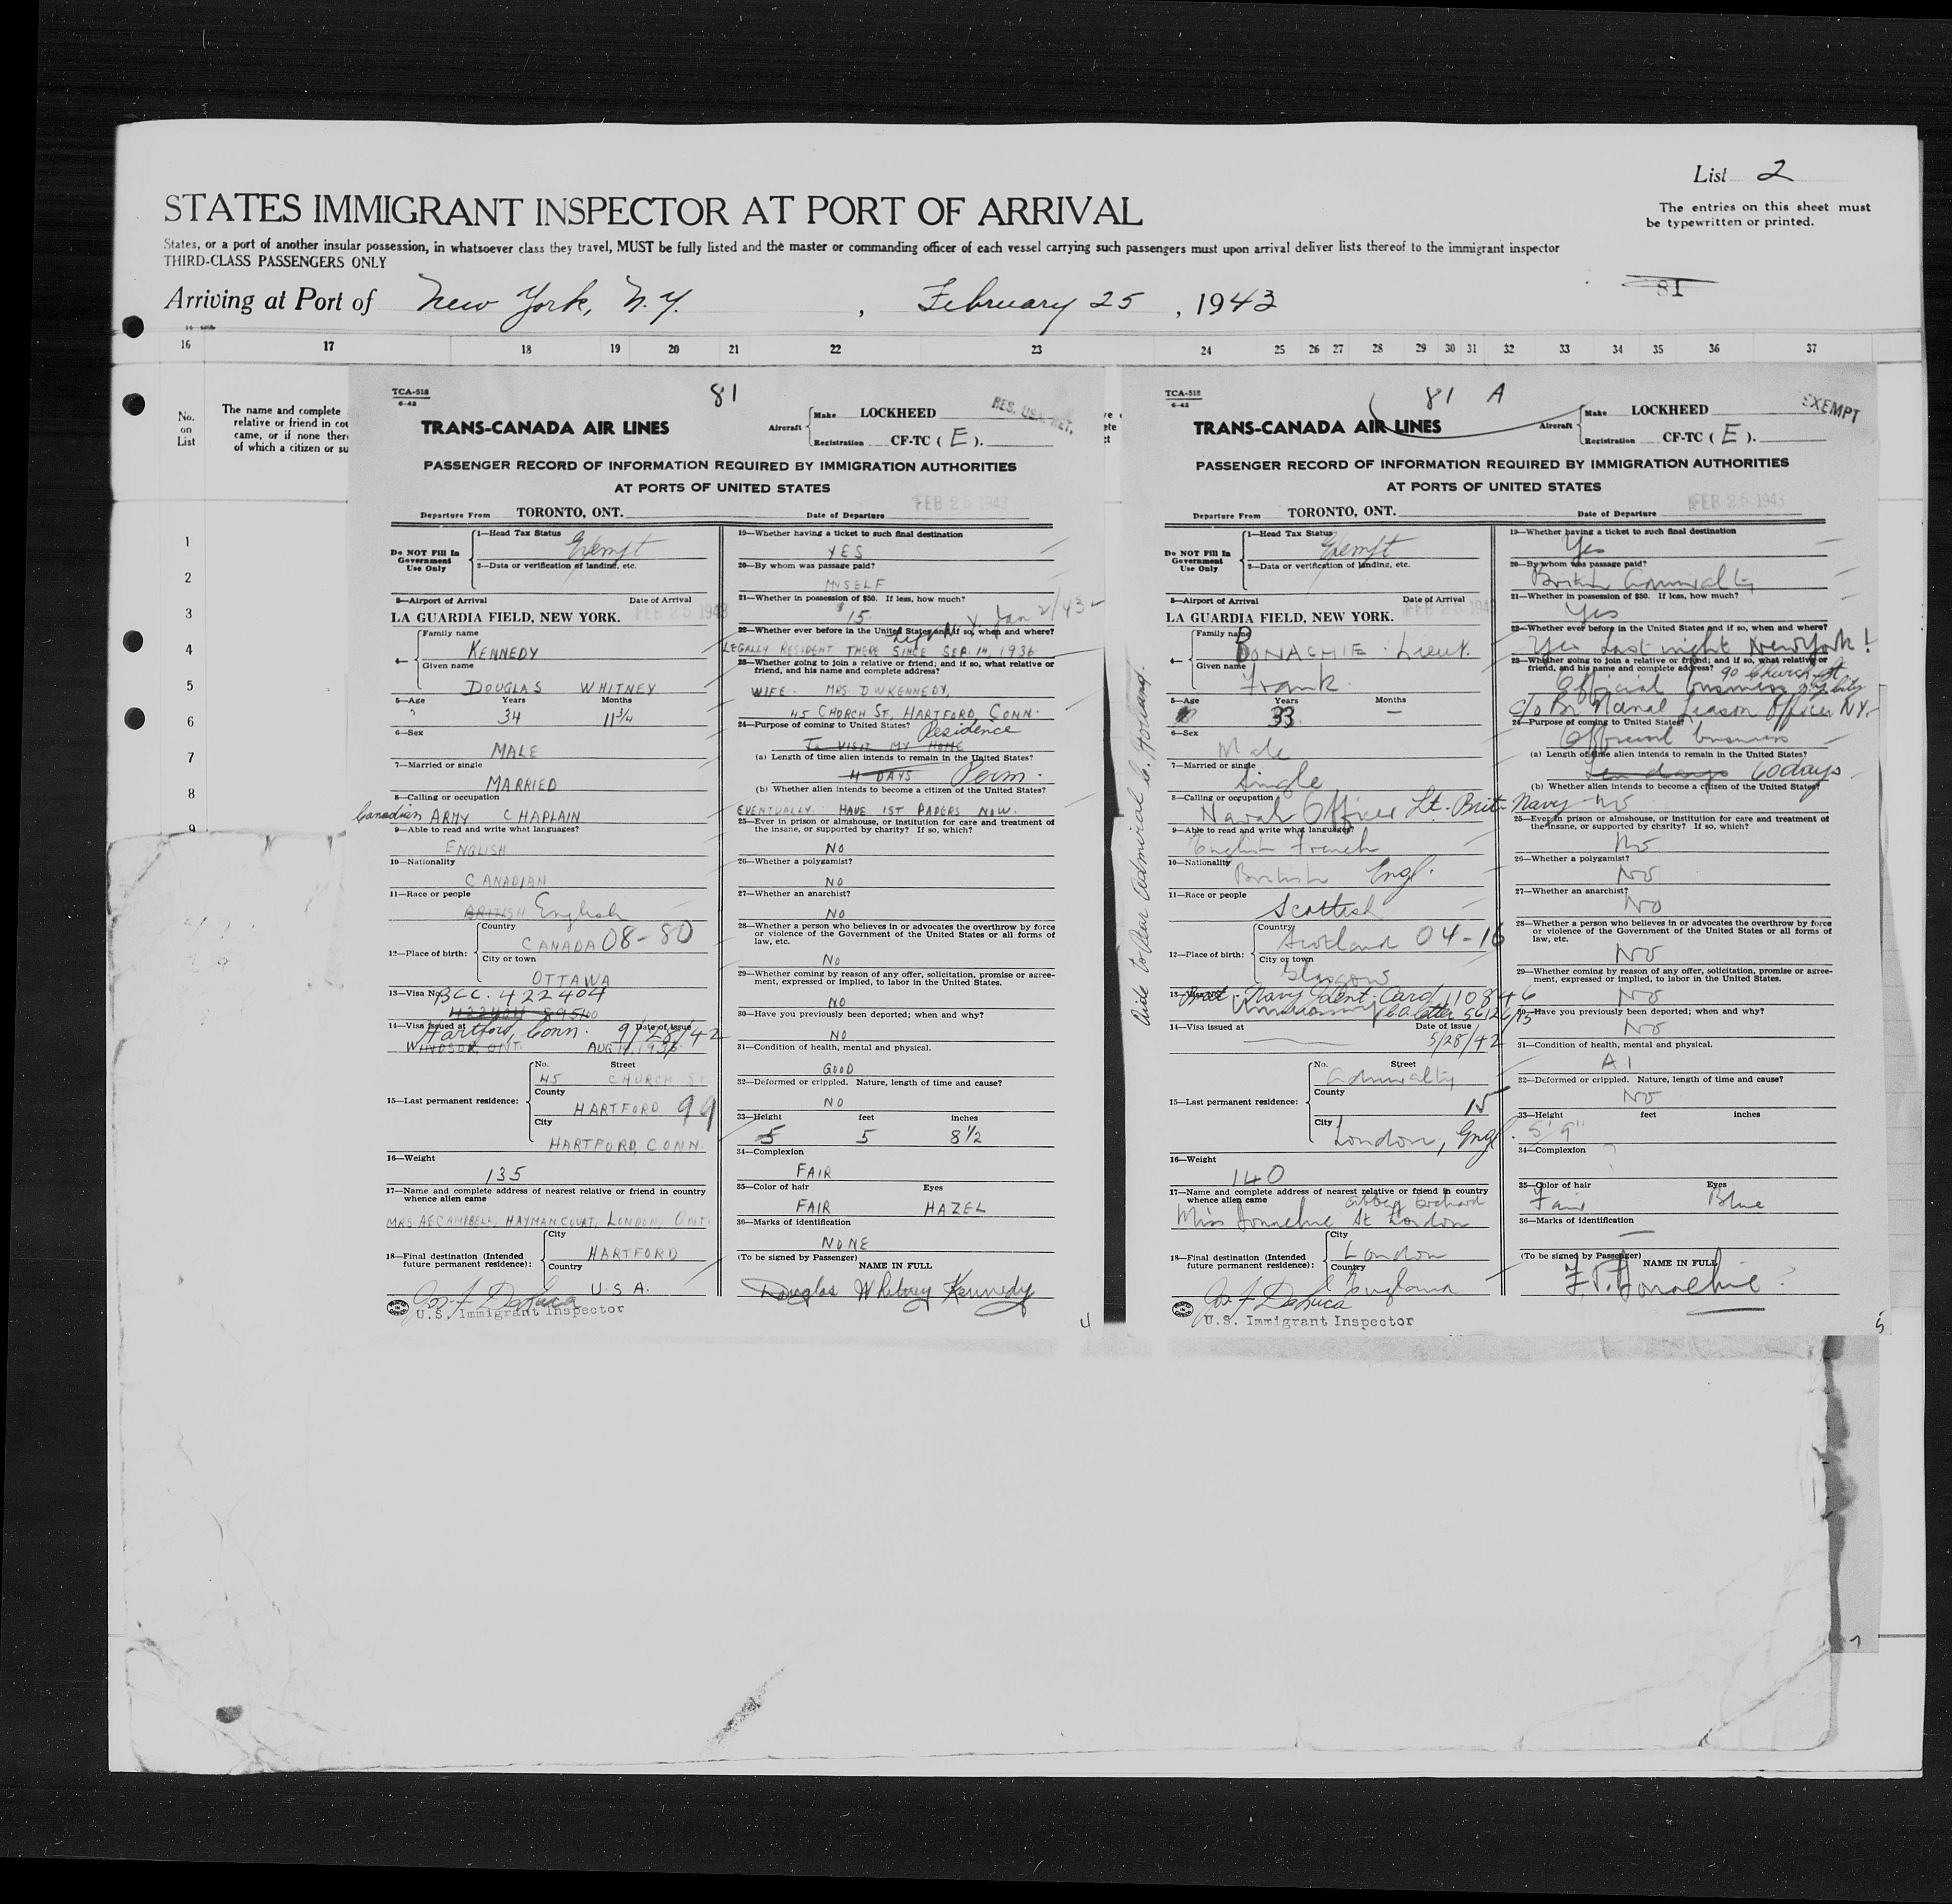 List 2
STATES IMMIGRANT INSPECTOR AT PORT OF ARRIVAL
The entries on this sheet must
be typewritten or printed.
States, or a port of another insular possession, in whatsoever class they travel, MUST be fully listed and the master or commanding officer of each vessel carrying such passengers must upon arrival deliver lists thereof to the immigrant inspector
THIRD-CLASS PASSENGERS ONLY
81
Arriving at Port of New York, N.Y. , February 25 , 1943
16 17 18 19 20 21 22 23 24 25 26 27 28 29 30 31 32 33 34 35 36 37
No.
on
List
The name and complete
relative or friend in cou
came, or if none there
of which a citizen or su
1
2
3
4
5
6
7
8
9
TCA-518
6-42
81
TRANS-CANADA AIR LINES
Aircraft
Make LOCKHEED
Registration CF-TC ( E ).
RES. USA. RET.
PASSENGER RECORD OF INFORMATION REQUIRED BY IMMIGRATION AUTHORITIES
AT PORTS OF UNITED STATES
Departure From TORONTO, ONT. Date of Departure FEB 25 1943
Do NOT Fill In
Government
Use Only
1—Head Tax Status Exempt
2—Data or verification of landing, etc.
3—Airport of Arrival Date of Arrival
LA GUARDIA FIELD, NEW YORK. FEB 25 1943
4—
Family name
KENNEDY
Given name
DOUGLAS WHITNEY
5—Age Years Months
34 11 3/4
6—Sex
MALE
7—Married or single
MARRIED
8—Calling or occupation
Canadian ARMY CHAPLAIN
9—Able to read and write what languages?
ENGLISH
10—Nationality
CANADIAN
11—Race or people
BRITISH English
12—Place of birth:
Country
CANADA 08-80
City or town
OTTAWA
13—Visa No. BCC. 422404
14—Visa issued at Date of issue
Hartford, Conn. 9/28/42
WINDSOR, ONT. AUG 14, 1936
15—Last permanent residence:
No. Street
45 CHURCH ST.
County
HARTFORD 99
City
HARTFORD, CONN.
16—Weight
135
17—Name and complete address of nearest relative or friend in country
whence alien came
MRS. A E CAMPBELL, HAYMAN COURT, LONDON, ONT.
18—Final destination (Intended
future permanent residence):
City
HARTFORD
Country
U.S.A.
Jos. F. DeLuca
U.S. Immigrant Inspector
19—Whether having a ticket to such final destination
YES
20—By whom was passage paid?
MYSELF
21—Whether in possession of $50. If less, how much?
$15. N.Y. Jan 2/43
22—Whether ever before in the United States and if so, when and where?
LEGALLY RESIDENT THERE SINCE SEP. 14, 1936
23—Whether going to join a relative or friend; and if so, what relative or
friend, and his name and complete address?
WIFE - MRS D W KENNEDY,
45 CHURCH ST, HARTFORD, CONN.
24—Purpose of coming to United States? Residence
TO VISIT MY HOME
(a) Length of time alien intends to remain in the United States?
4 DAYS Perm.
(b) Whether alien intends to become a citizen of the United States?
EVENTUALLY. HAVE 1ST PAPERS NOW.
25—Ever in prison or almshouse, or institution for care and treatment of
the insane, or supported by charity? If so, which?
NO
26—Whether a polygamist?
NO
27—Whether an anarchist?
NO
28—Whether a person who believes in or advocates the overthrow by force
or violence of the Government of the United States or all forms of
law, etc.
NO
29—Whether coming by reason of any offer, solicitation, promise or agree-
ment, expressed or implied, to labor in the United States.
NO
30—Have you previously been deported; when and why?
NO
31—Condition of health, mental and physical.
GOOD
32—Deformed or crippled. Nature, length of time and cause?
NO
33—Height feet inches
5 5 8 1/2
34—Complexion
FAIR
35—Color of hair Eyes
FAIR HAZEL
36—Marks of identification
NONE
(To be signed by Passenger)
NAME IN FULL
Douglas Whitney Kennedy
4
Aide to Rear Admiral
TCA-518
6-42
81 A
TRANS-CANADA AIR LINES
Aircraft
Make LOCKHEED
Registration CF-TC ( E ).
EXEMPT
PASSENGER RECORD OF INFORMATION REQUIRED BY IMMIGRATION AUTHORITIES
AT PORTS OF UNITED STATES
Departure From TORONTO, ONT. Date of Departure FEB 25 1943
Do NOT Fill In
Government
Use Only
1—Head Tax Status Exempt
2—Data or verification of landing, etc.
3—Airport of Arrival Date of Arrival
LA GUARDIA FIELD, NEW YORK. FEB 25 1943
4—
Family name
BONACHIE Lieut.
Given name
Frank
5—Age Years Months
33 —
6—Sex
Male
7—Married or single
Single
8—Calling or occupation
Naval Officer Lt. Brit. Navy
9—Able to read and write what languages?
English French
10—Nationality
British Engl.
11—Race or people
Scottish
12—Place of birth:
Country
Scotland 04-16
City or town
Glasgow
Navy Ident. Card 110846
14—Visa issued at Date of issue
5/28/42
15—Last permanent residence:
No. Street
Admiralty
County
15
City
London, Engl.
16—Weight
140
17—Name and complete address of nearest relative or friend in country
whence alien came Abbey Orchard
Miss St London
18—Final destination (Intended
future permanent residence):
City
London
Country
England
Jos. F. DeLuca
U.S. Immigrant Inspector
19—Whether having a ticket to such final destination
Yes
20—By whom was passage paid?
British Admiralty
21—Whether in possession of $50. If less, how much?
Yes
22—Whether ever before in the United States and if so, when and where?
Yes last night New York!
23—Whether going to join a relative or friend; and if so, what relative or
friend, and his name and complete address? 90 Church St
Official business
c/o Br Naval Liason Officer N.Y.
24—Purpose of coming to United States?
Official business
(a) Length of time alien intends to remain in the United States?
Ten days 60 days
(b) Whether alien intends to become a citizen of the United States?
No
25—Ever in prison or almshouse, or institution for care and treatment of
the insane, or supported by charity? If so, which?
No
26—Whether a polygamist?
No
27—Whether an anarchist?
No
28—Whether a person who believes in or advocates the overthrow by force
or violence of the Government of the United States or all forms of
law, etc.
No
29—Whether coming by reason of any offer, solicitation, promise or agree-
ment, expressed or implied, to labor in the United States.
No
30—Have you previously been deported; when and why?
No
31—Condition of health, mental and physical.
A1
32—Deformed or crippled. Nature, length of time and cause?
No
33—Height feet inches
5' 9"
34—Complexion
35—Color of hair Eyes
Fair Blue
36—Marks of identification
(To be signed by Passenger)
NAME IN FULL
5
7